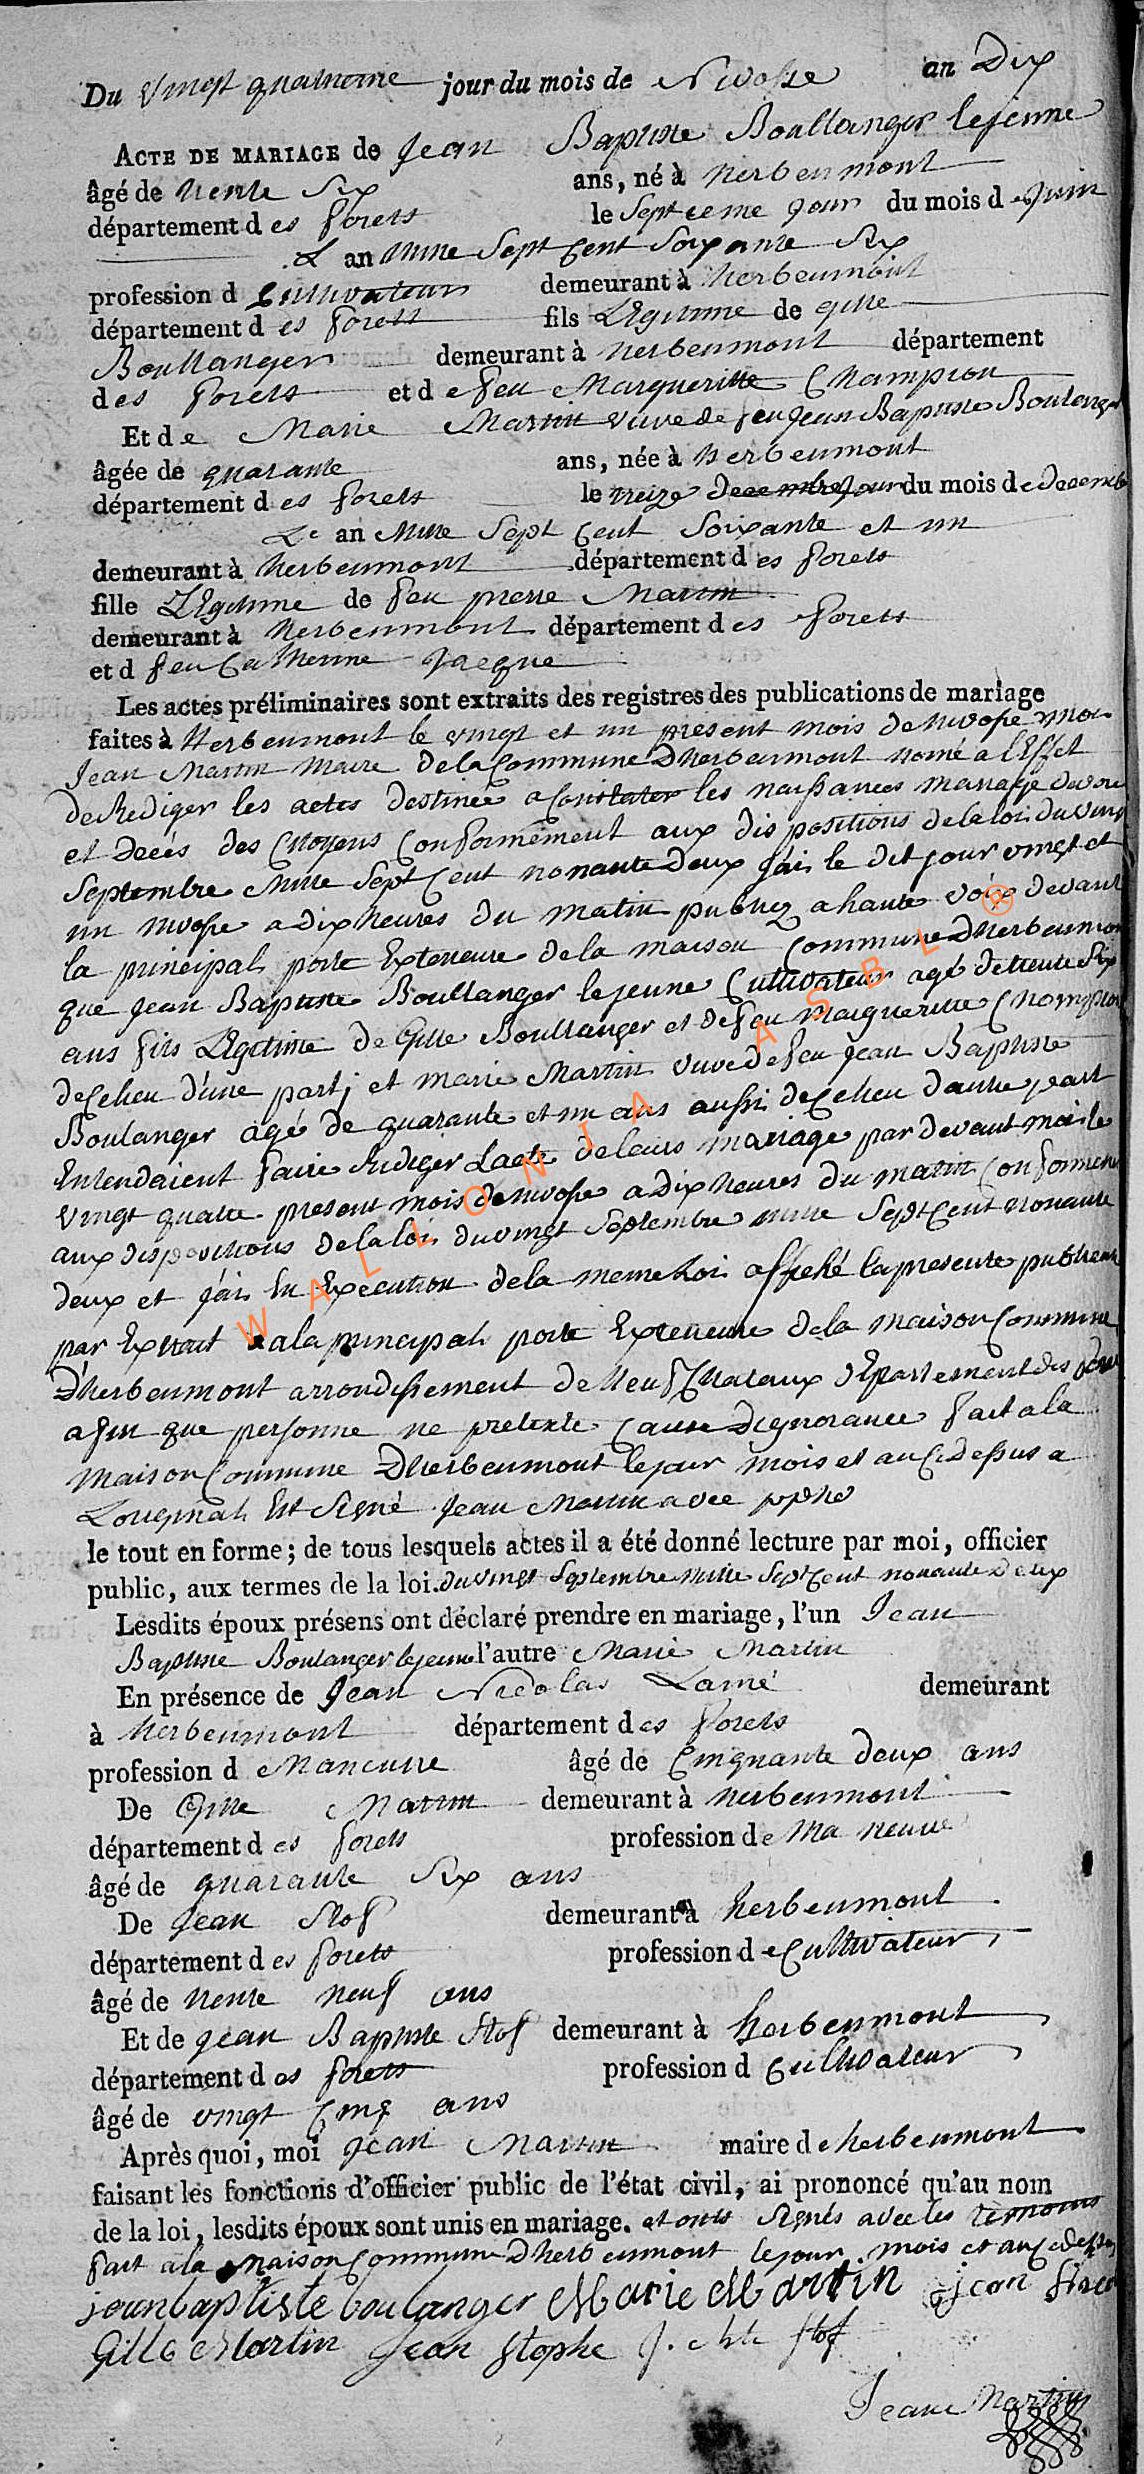 Du Vingt quatrieme jour du mois de Nivosse an Dix
ACTE DE MARIAGE de Jean Baptiste Boullanger lejeune
âgé de trente Six ans, né à herbeumont
département des forets le Septieme jour du mois de Juin
L an Mille Sept Cent Soixante Six
profession d Cultivateur demeurant à herbeumont
département des forets fils LEgitime de gille
Boullanger demeurant à herbeumont département
des forets et de feu Margueritte Champion
Et de Marie Martin vuve de feu Jean Baptiste Boulanger
âgée de quarante ans, née à herbeumont
département des forets le treize decembre jour du mois de decembre
Le an Mille Sept Cent Soixante et un
demeurant à herbeumont département des forets
fille LEgitime de feu pierre Martin
demeurant à herbeumont département des forets
et d feu Catherine Jacque
Les actes préliminaires sont extraits des registres des publications de mariage
faites à Herbeumont le vingt et un present mois de nivose
Jean Martin Maire dela Commune Dherbeumont nomé a lEffet
de Rediger les actes destinée a Constater les naissances mariage devorce
et Decés des Citoyens Conformément aux dispositions dela loi du vingt
Septembre Mille Sept Cent nonante Deux J'ais le dit jour vingt et
un nivose a dix heures du matin publiez a haute voix devant
la principal porte Exterieure de la maison Commune Dherbeumont
que Jean Baptiste Boullanger lejeune Cultivateur agé detrente Six
ans fils LEgitime de Gille Boullanger et defeu Margueritte Champion
deCelieu d'une part; et marie Martin vuve defeu Jean Baptiste
Boulanger agé de quarante et un ans aussi deCelieu dautre part
Entendaient faire Rediger Lacte de leurs mariage par devant moi le
vingt quatre present mois de nivose a Dix heures du matin Conformement
aux dispositions dela loi du vingt Septembre mille Sept Cent nonante
deux et J'ais En Execution dela meme Loi affiché la presente publication
par Extrait a la principal porte Exterieure dela maison Commune
D'herbeumont arrondissement de Neufchateaux dEpartement des forets
afin que personne ne pretexte Cause Dignorance fait a la
maison Commune Dherbeumont lejour mois et an Cidessus a
Loriginal Est Signé Jean Martin avec pphe
le tout en forme; de tous lesquels actes il a été donné lecture par moi, officier
public, aux termes de la loi. du vingt Septembre mille Sept Cent nonante Deux
Lesdits époux présens ont déclaré prendre en mariage, l'un Jean
Baptiste Boulanger lejeune l'autre Marie Martin
En présence de Jean Nicolas Lamé demeurant
à herbeumont département des forets
profession d Maneuvre âgé de Cinquante deux ans
De Gille Martin demeurant à herbeumont
département des forets profession de Ma neuvre
âgé de quarante Six ans
De Jean Stof demeurant à herbeumont
département des forets profession de Cultivateur
âgé de trente neuf ans
Et de Jean Baptiste Stof demeurant à herbeumont
département des forets profession d Cultivateur
âgé de vingt Cinq ans
Après quoi, moi Jean Martin maire de herbeumont
faisant les fonctions d'officier public de l'état civil, ai prononcé qu'au nom
de la loi, lesdits époux sont unis en mariage. et onts Signés avec les temoins
fait a la Maison Commune Dherbeumont lejour mois et an Cidessus
jean baptiste boulanger Marie Martin jean
Gille Martin Jean Stophe J. Stof
Jean Martin
WALLONIA ASBL ®